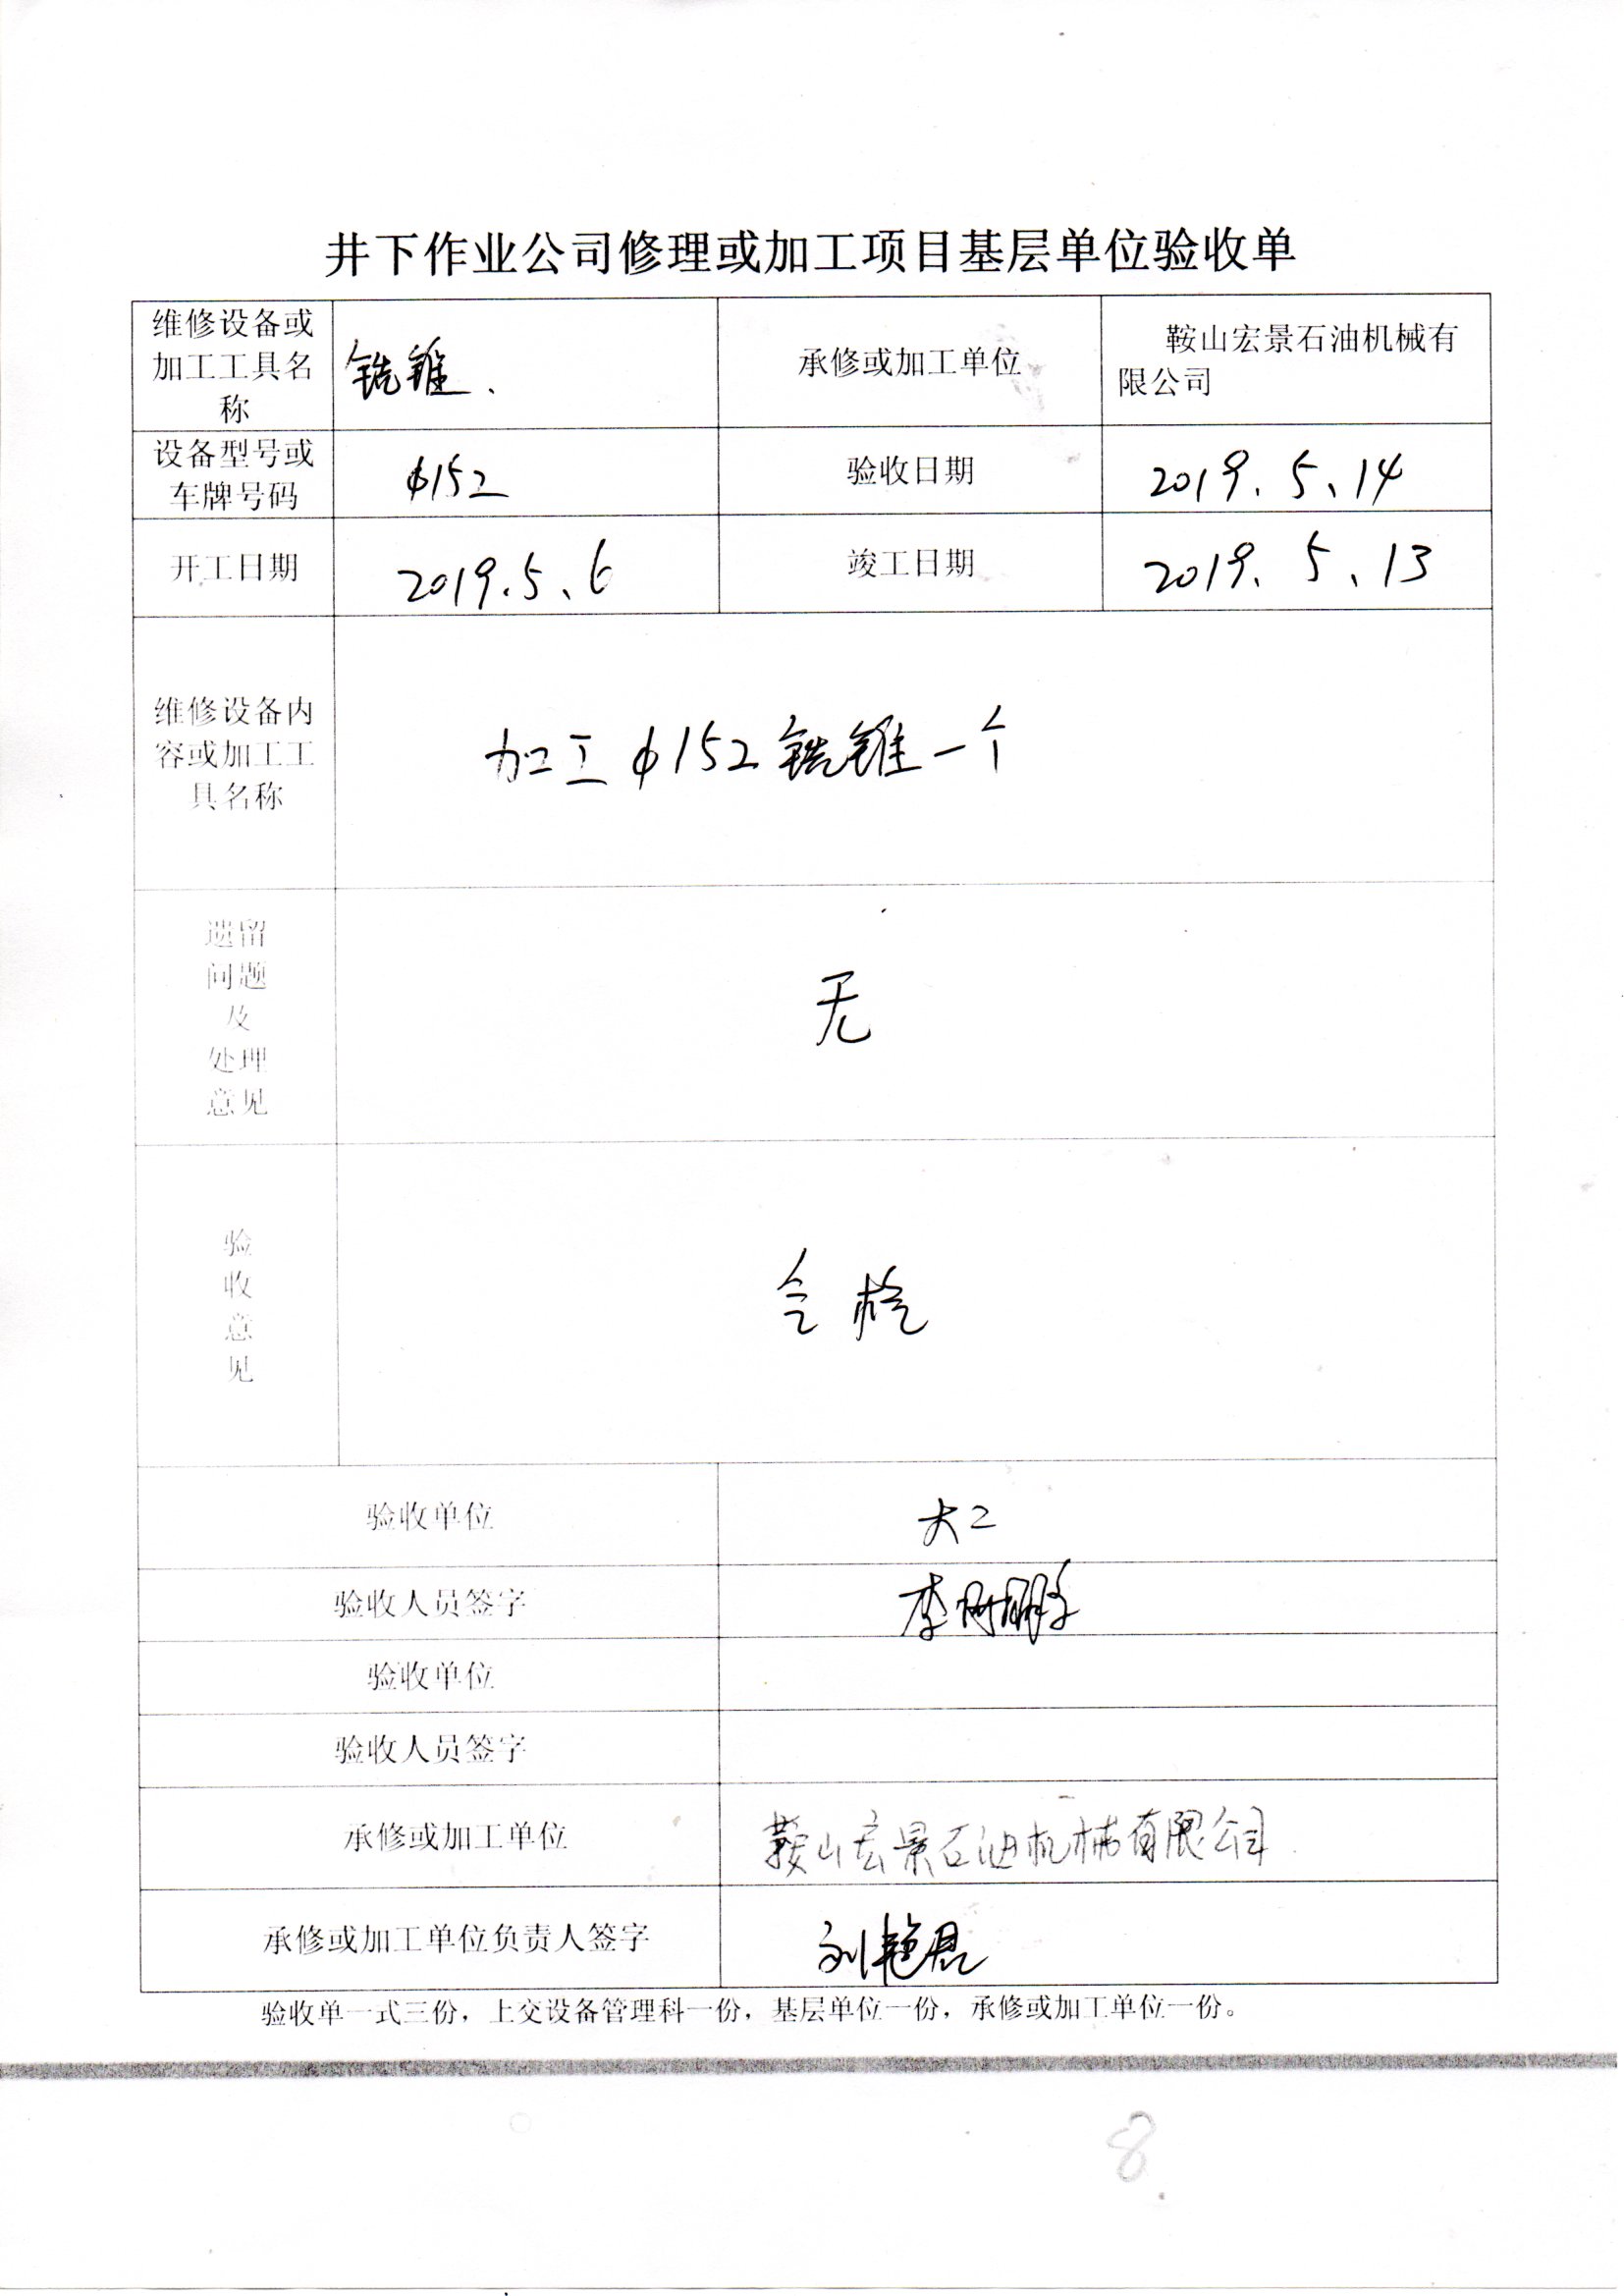 井下作业公司修理或加工项目基层单位验收单
维修设备或
加工工具名
称
铣锥、
承修或加工单位
鞍山宏景石油机械有
限公司
设备型号或
车牌号码
φ152
验收日期
2019.5.14
开工日期
2019.5.6
竣工日期
2019.5.13
维修设备内
容或加工工
具名称
加工φ152铣锥一个
遗留
问题
及
处理
意见
无
验
收
意
见
合格
验收单位
大二
验收人员签字
李树鹏
验收单位
验收人员签字
承修或加工单位
鞍山宏景石油机械有限公司
承修或加工单位负责人签字
刘艳君
验收单一式三份，上交设备管理科一份，基层单位一份，承修或加工单位一份。
8